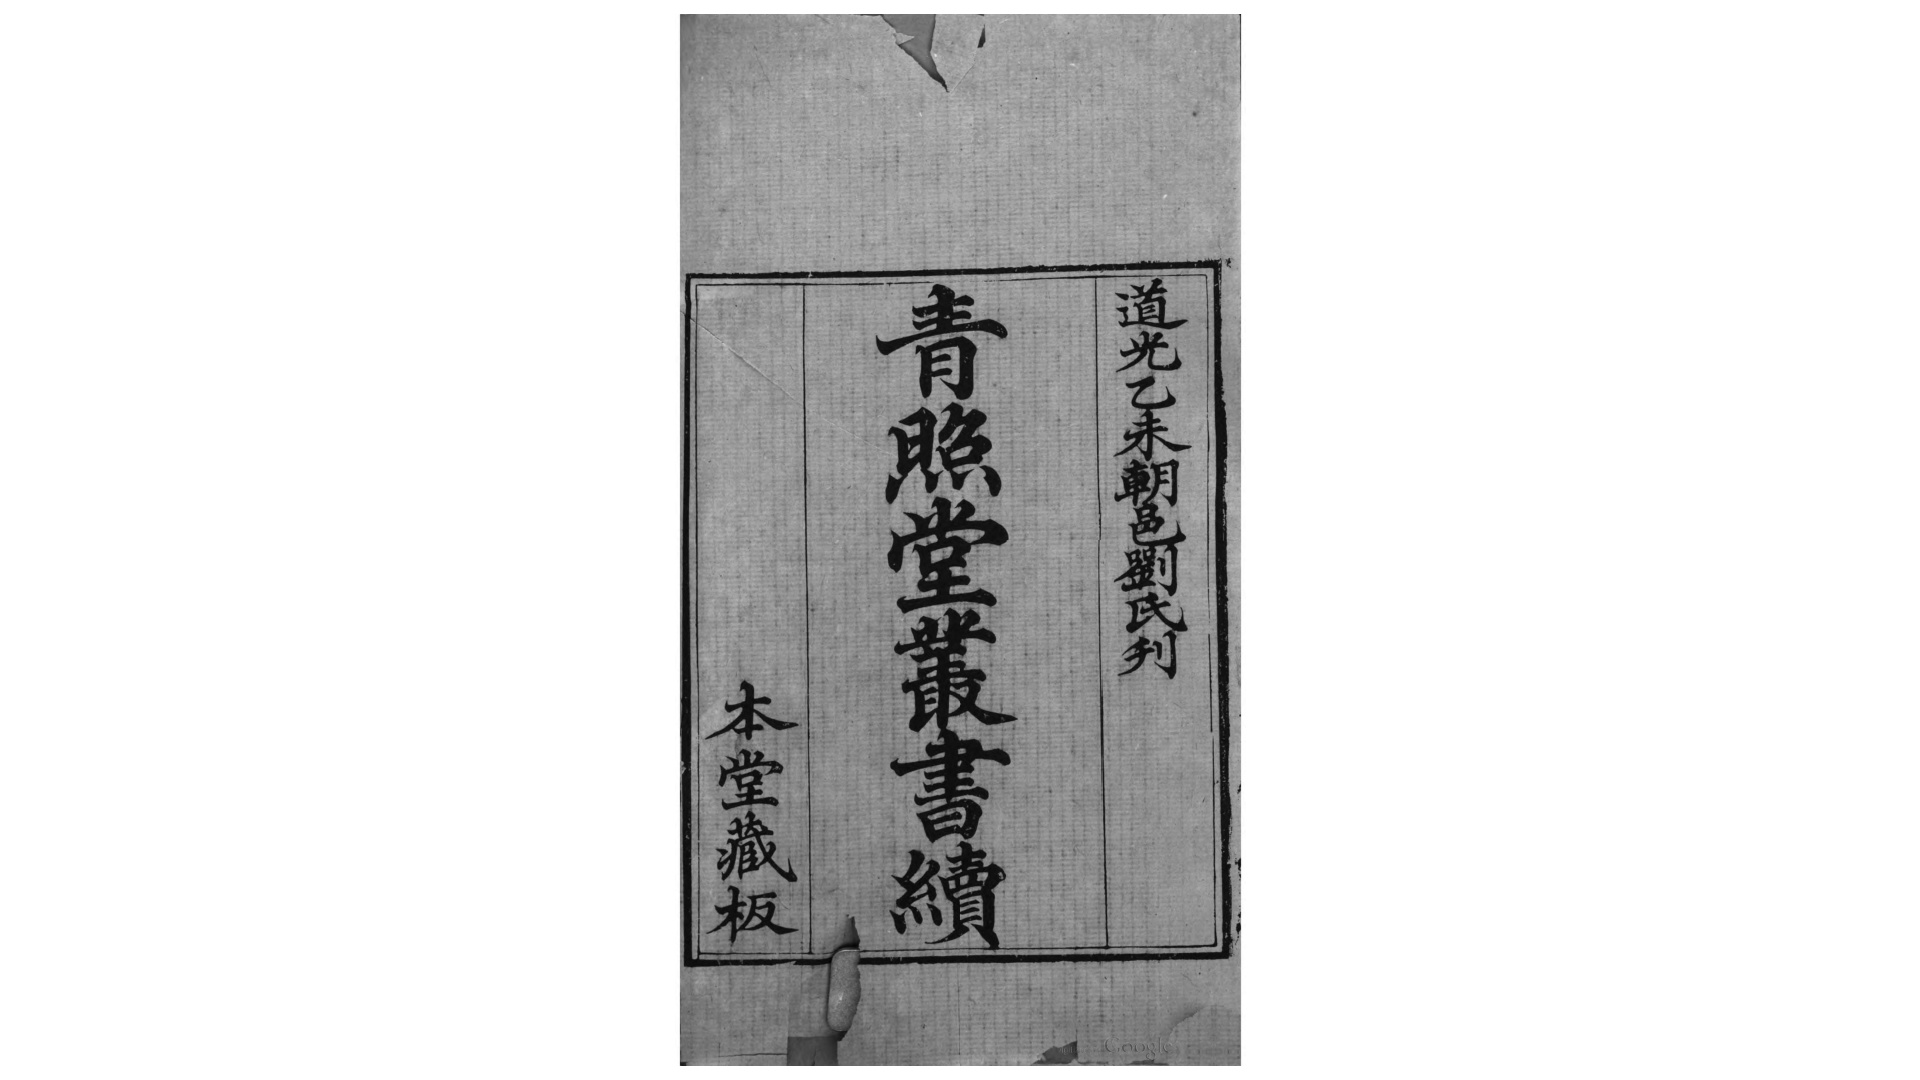 道光乙未朝邑劉氏刊
青照堂叢書續
本堂藏板
Google